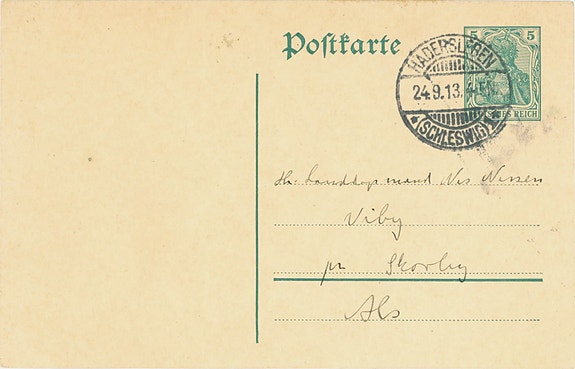 Postkarte
5 5
HADERSLEBEN
24.9.13.
*(SCHLESWIG)*
REICH
Hr. Landdagsmand Nis Nissen
Viby
pr Skovby
Als